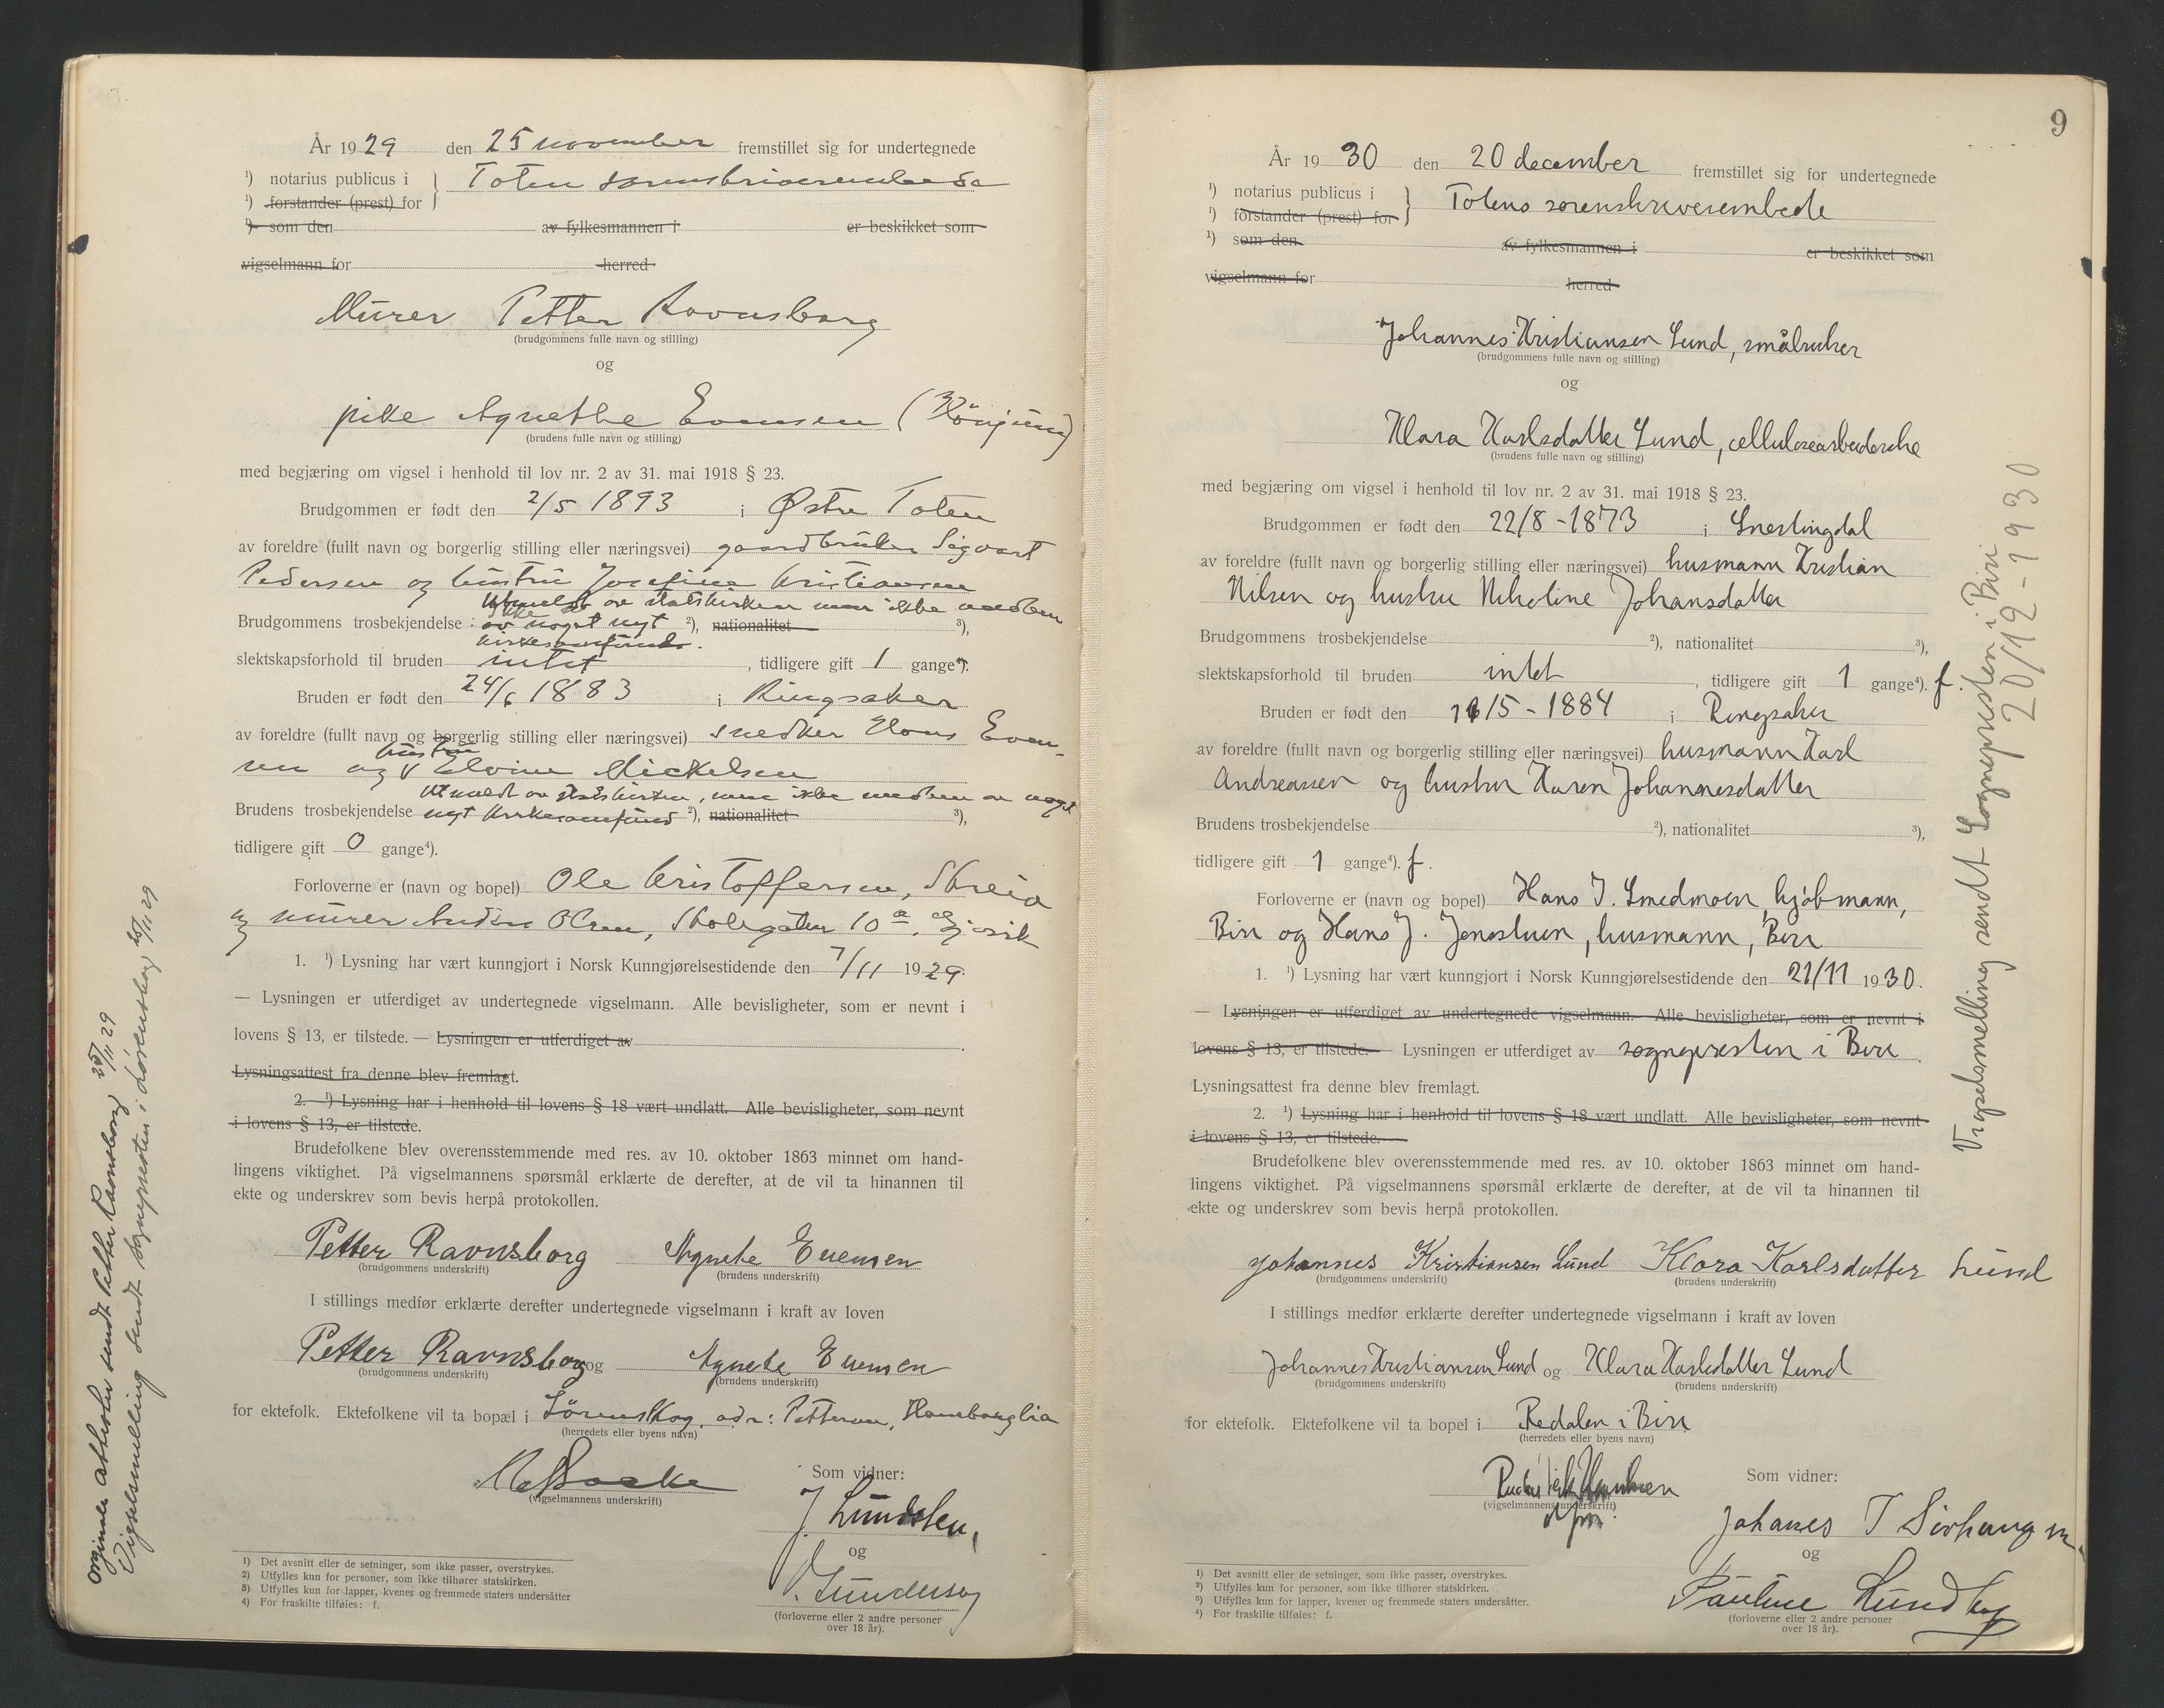 År 1929 den 25 november fremstillet sig for undertegnede
¹) notarius publicus i } Toten
¹) forstander (prest) for
¹) som den av fylkesmannen i er beskikket som
vigselmann for herred
Murer Petter Ravnsborg
(brudgommens fulle navn og stilling)
og
pike Agnethe Evensen
(brudens fulle navn og stilling)
med begjæring om vigsel i henhold til lov nr. 2 av 31. mai 1918 § 23.
Brudgommen er født den 2/5 1893 i Østre Toten
av foreldre (fullt navn og borgerlig stilling eller næringsvei) gaardbruker Sigvart
Pedersen og hustru Josefine Kristiansen
Utmeldt av statskirken men ikke medlem
Brudgommens trosbekjendelse av noget nyt ²), nationalitet ³),
kirkesamfund.
slektskapsforhold til bruden intet, tidligere gift 1 gange⁴).
Bruden er født den 24/6 1883 i Ringsaker
av foreldre (fullt navn og borgerlig stilling eller næringsvei) snedker Hans Even-
hustru
sen og Elvine Mickelsen
Utmeldt av statskirken, men ikke medlem av noget
Brudens trosbekjendelse nyt kirkesamfund ²), nationalitet ³),
tidligere gift 0 gange⁴).
Forloverne er (navn og bopel) Ole Kristoffersen, Skreia
og murer Anders Olsen, Skolegaten 10 a, Gjøvik
1. ¹) Lysning har vært kunngjort i Norsk Kunngjørelsestidende den 7/11 1929.
— Lysningen er utferdiget av undertegnede vigselmann. Alle bevisligheter, som er nevnt i
lovens § 13, er tilstede. — Lysningen er utferdiget av .
Lysningsattest fra denne blev fremlagt.
2. ¹) Lysning har i henhold til lovens § 18 vært undlatt. Alle bevisligheter, som nevnt
i lovens § 13, er tilstede.
Brudefolkene blev overensstemmende med res. av 10. oktober 1863 minnet om hand-
lingens viktighet. På vigselmannens spørsmål erklærte de derefter, at de vil ta hinannen til
ekte og underskrev som bevis herpå protokollen.
Petter Ravnsborg Agnete Evensen
(brudgommens underskrift) (brudens underskrift)
I stillings medfør erklærte derefter undertegnede vigselmann i kraft av loven
Petter Ravnsborg og Agnete Evensen
(brudgommens underskrift) (brudens underskrift)
for ektefolk. Ektefolkene vil ta bopæl i Lörenskog, adr: Petterson,
(herredets eller byens navn)
(vigselmannens underskrift)
Som vidner:
J. Lundsten,
og
Gundersen
(forloverne eller 2 andre personer
over 18 år).
1) Det avsnitt eller de setninger, som ikke passer, overstrykes.
2) Utfylles kun for personer, som ikke tilhører statskirken.
3) Utfylles kun for lapper, kvener og fremmede staters undersåtter
4) For fraskilte tilføies: f.
sendt Petter Ravnsborg 25/11 29
Vigselsmelling sendt sognepresten i Lörenskog 25/11 29
9
År 1930 den 20 december fremstillet sig for undertegnede
¹) notarius publicus i } Totens sorenskriverembede
¹) forstander (prest) for
¹) som den av fylkesmannen i er beskikket som
vigselmann for herred
Johannes Kristiansen Lund, småbruker
(brudgommens fulle navn og stilling)
og
Klara Karlsdatter Lund, cellulosearbeiderske
(brudens fulle navn og stilling)
med begjæring om vigsel i henhold til lov nr. 2 av 31. mai 1918 § 23.
Brudgommen er født den 22/8 - 1873 i Snertingdal
av foreldre (fullt navn og borgerlig stilling eller næringsvei) husmann Kristian
Nilsen og hustru Nikoline Johansdatter
Brudgommens trosbekjendelse ²), nationalitet ³),
slektskapsforhold til bruden intet, tidligere gift 1 gange⁴). f.
Bruden er født den 16/5 - 1884 i Ringsaker
av foreldre (fullt navn og borgerlig stilling eller næringsvei) husmann Karl
Andreassen og hustru Karen Johannesdatter
Brudens trosbekjendelse ²), nationalitet ³),
tidligere gift 1 gange⁴). f.
Forloverne er (navn og bopel) Hans J. Smedmoen, kjøbmann,
Biri og Hans J. Jonastuen, husmann, Biri
1. ¹) Lysning har vært kunngjort i Norsk Kunngjørelsestidende den 21/11 1930.
— Lysningen er utferdiget av undertegnede vigselmann. Alle bevisligheter, som er nevnt i
lovens § 13, er tilstede. — Lysningen er utferdiget av sognepresten i Biri.
Lysningsattest fra denne blev fremlagt.
2. ¹) Lysning har i henhold til lovens § 18 vært undlatt. Alle bevisligheter, som nevnt
i lovens § 13, er tilstede.
Brudefolkene blev overensstemmende med res. av 10. oktober 1863 minnet om hand-
lingens viktighet. På vigselmannens spørsmål erklærte de derefter, at de vil ta hinannen til
ekte og underskrev som bevis herpå protokollen.
Johannes Kristiansen Lund Klara Karlsdatter Lund
(brudgommens underskrift) (brudens underskrift)
I stillings medfør erklærte derefter undertegnede vigselmann i kraft av loven
Johannes Kristiansen Lund og Klara Karlsdatter Lund
(brudgommens underskrift) (brudens underskrift)
for ektefolk. Ektefolkene vil ta bopel i Redalen i Biri
(herredets eller byens navn)
(vigselmannens underskrift)
Som vidner:
Johanes T
og
Pauline Lundby
(forloverne eller 2 andre personer
over 18 år).
1) Det avsnitt eller de setninger, som ikke passer, overstrykes.
2) Utfylles kun for personer, som ikke tilhører statskirken.
3) Utfylles kun for lapper, kvener og fremmede staters undersåtter.
4) For fraskilte tilføies: f.
Vigselsmelling sendt Sognepresten i Biri
20/12 - 1930